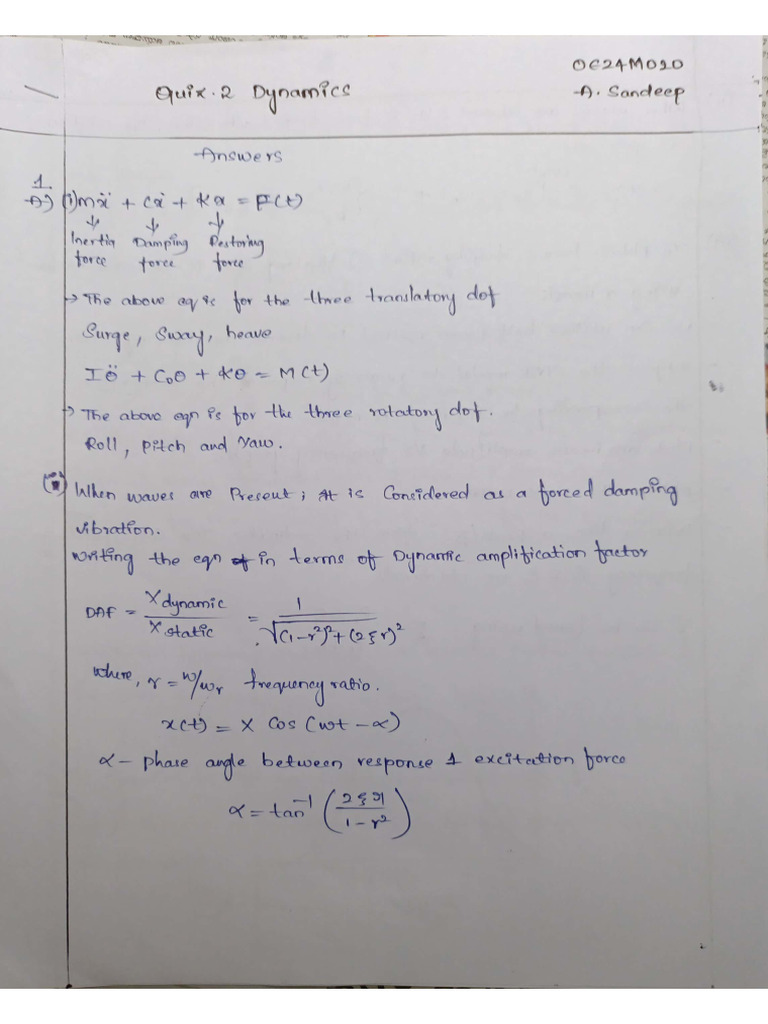 OE24M020
Quix.2 Dynamics
-A. Sandeep
Answers
1
A) (i) mẍ + cẋ + Kx = F(t)
Inertia force Damping force Restoring force
→ The above eq is for the three translatory dof
Surge, Sway, heave
Iӫ + C₀θ + Kθ = M(t)
→ The above eqn is for the three rotatory dof.
Roll, Pitch and Yaw.
(ii) When waves are Present; it is Considered as a forced damping
vibration.
Writing the eqn in terms of Dynamic amplification factor
DAF = X dynamic / X static = 1 / √(1-r²)²+(2ξr)²
where, r = w/wr frequency ratio.
x(t) = X Cos (wt - α)
α - phase angle between response 1 excitation force
α = tan⁻¹ (2ξr / 1-r²)